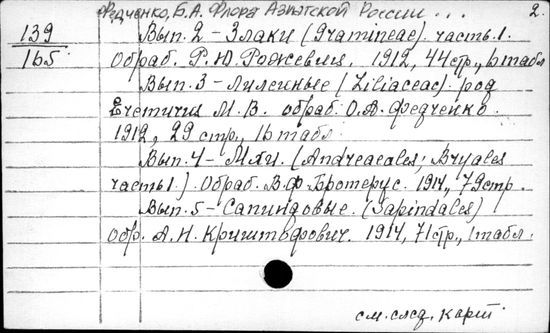 Федченко, Б.А. Флора Азиатской России... 2.
139 Вып. 2 - Злаки (Gramineae). часть 1.
165 Обраб. Р.Ю. Рожевиц. 1912, 44 стр., 6 табл
Вып. 3 - Лилейные (Liliaceae) род
М.В. обраб. О.А. Федченко.
1912, 29 стр., 16 табл.
Вып. 4 - Мхи. (Andreaeales; Bryales
часть 1.). Обраб. В.Ф. Бротерус. 1914, 79 стр.
Вып. 5 - Сапиндовые. (Sapindales)
обр. А.Н. Криштофович. 1914, 71 стр., 1 табл.
см. след. карт